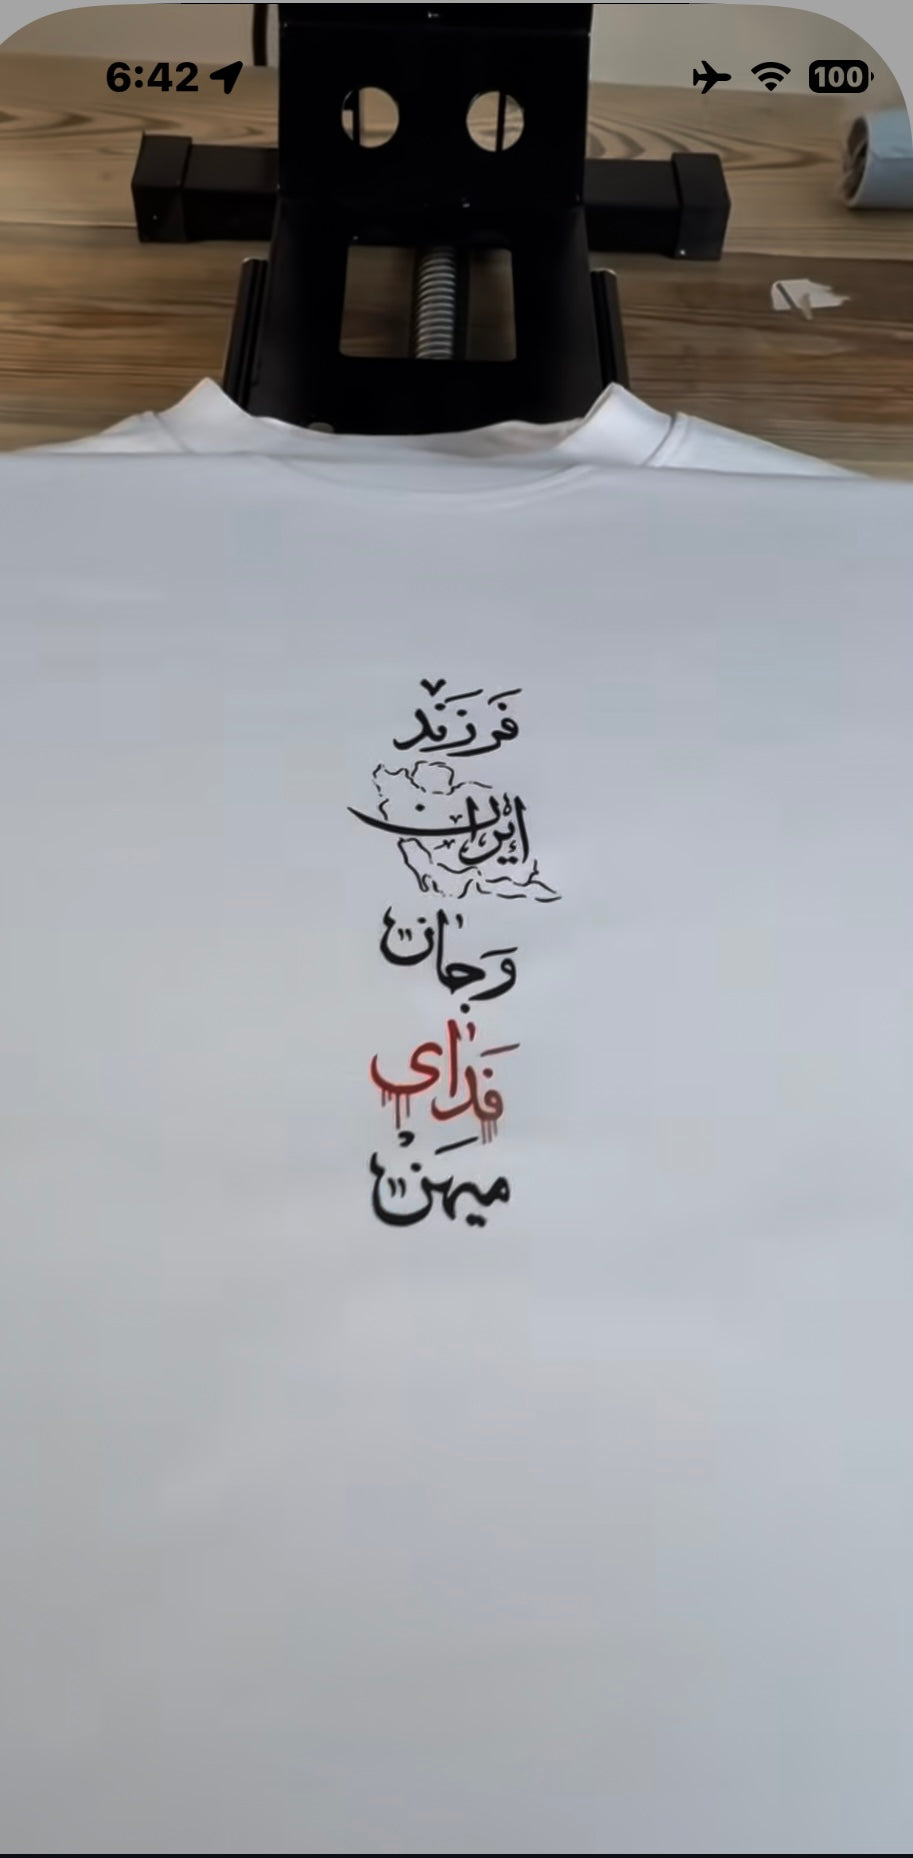 6:42
100
فَرزَند
ایران
وَ جان
فَدای
میهَن